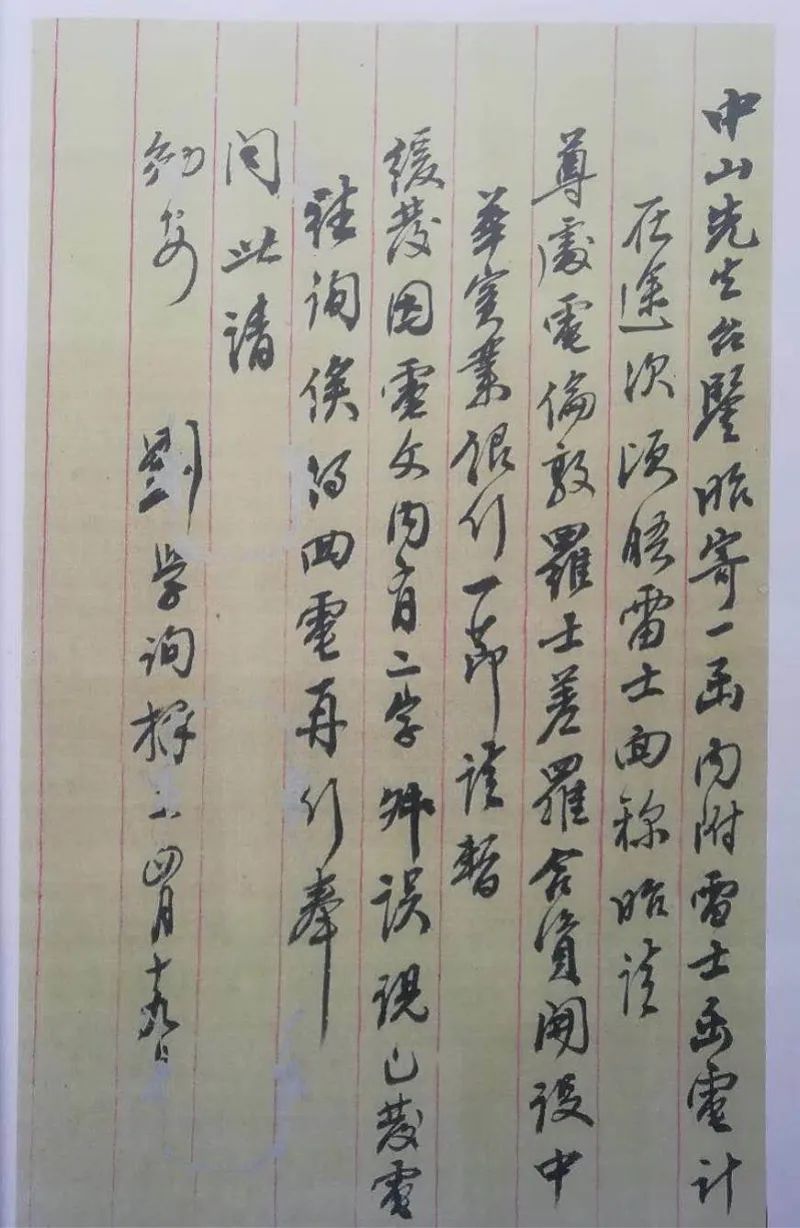 中山先生台鑒昨寄一函内附雷士函電計
在途次頃晤雷士面称昨請
尊處電倫敦羅士差羅合資開設中
華實業銀行一節請暫
緩發因電文内有二字舛误現已發電
往询俟得回電再行奉
问此請
勋安
劉学询押上四月十九日